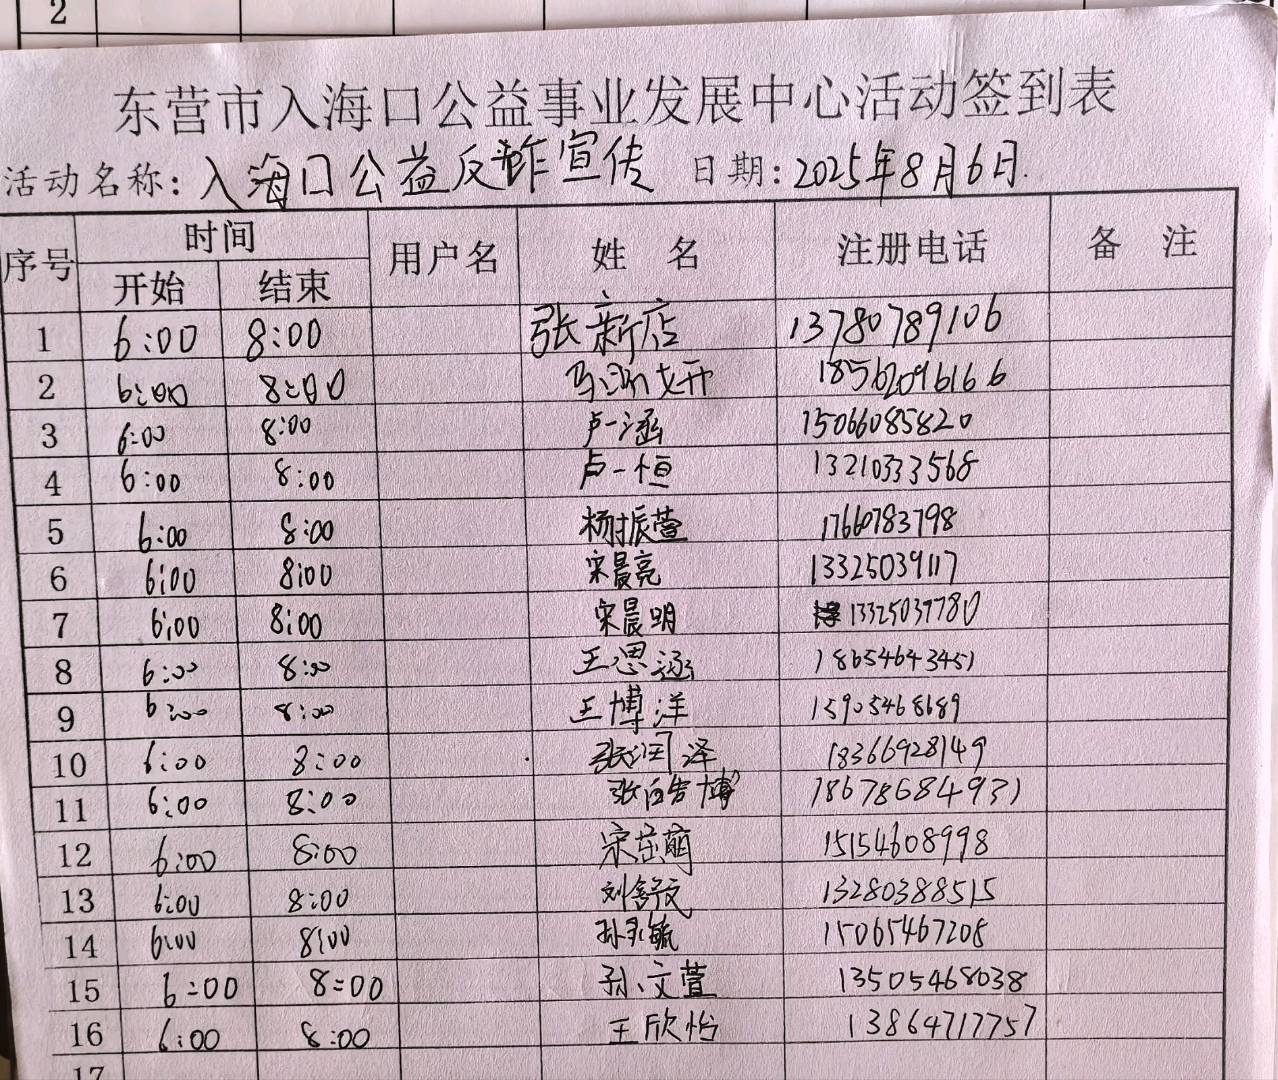 2
东营市入海口公益事业发展中心活动签到表
活动名称: 入海口公益反诈宣传 日期: 2025年8月6日.
序号 时间 用户名 姓 名 注册电话 备 注
开始 结束
1 6:00 8:00 张新店 13780789106
2 6:00 8:00 马 18562096166
3 6:00 8:00 卢一涵 15066085820
4 6:00 8:00 卢一恒 13210333568
5 6:00 8:00 杨振萱 17660783798
6 6:00 8:00 宋晨亮 13325039117
7 6:00 8:00 宋晨明 13325037780
8 6:00 8:00 王思涵 18654643451
9 6:00 8:00 王博洋 15905468689
10 6:00 8:00 张润泽 18366928149
11 6:00 8:00 张 博 18678684931
12 6:00 8:00 宋 萌 15154608998
13 6:00 8:00 刘舒文 13280388515
14 6:00 8:00 孙 毓 15065467208
15 6:00 8:00 孙文萱 13505468038
16 6:00 8:00 王欣怡 13864717757
17